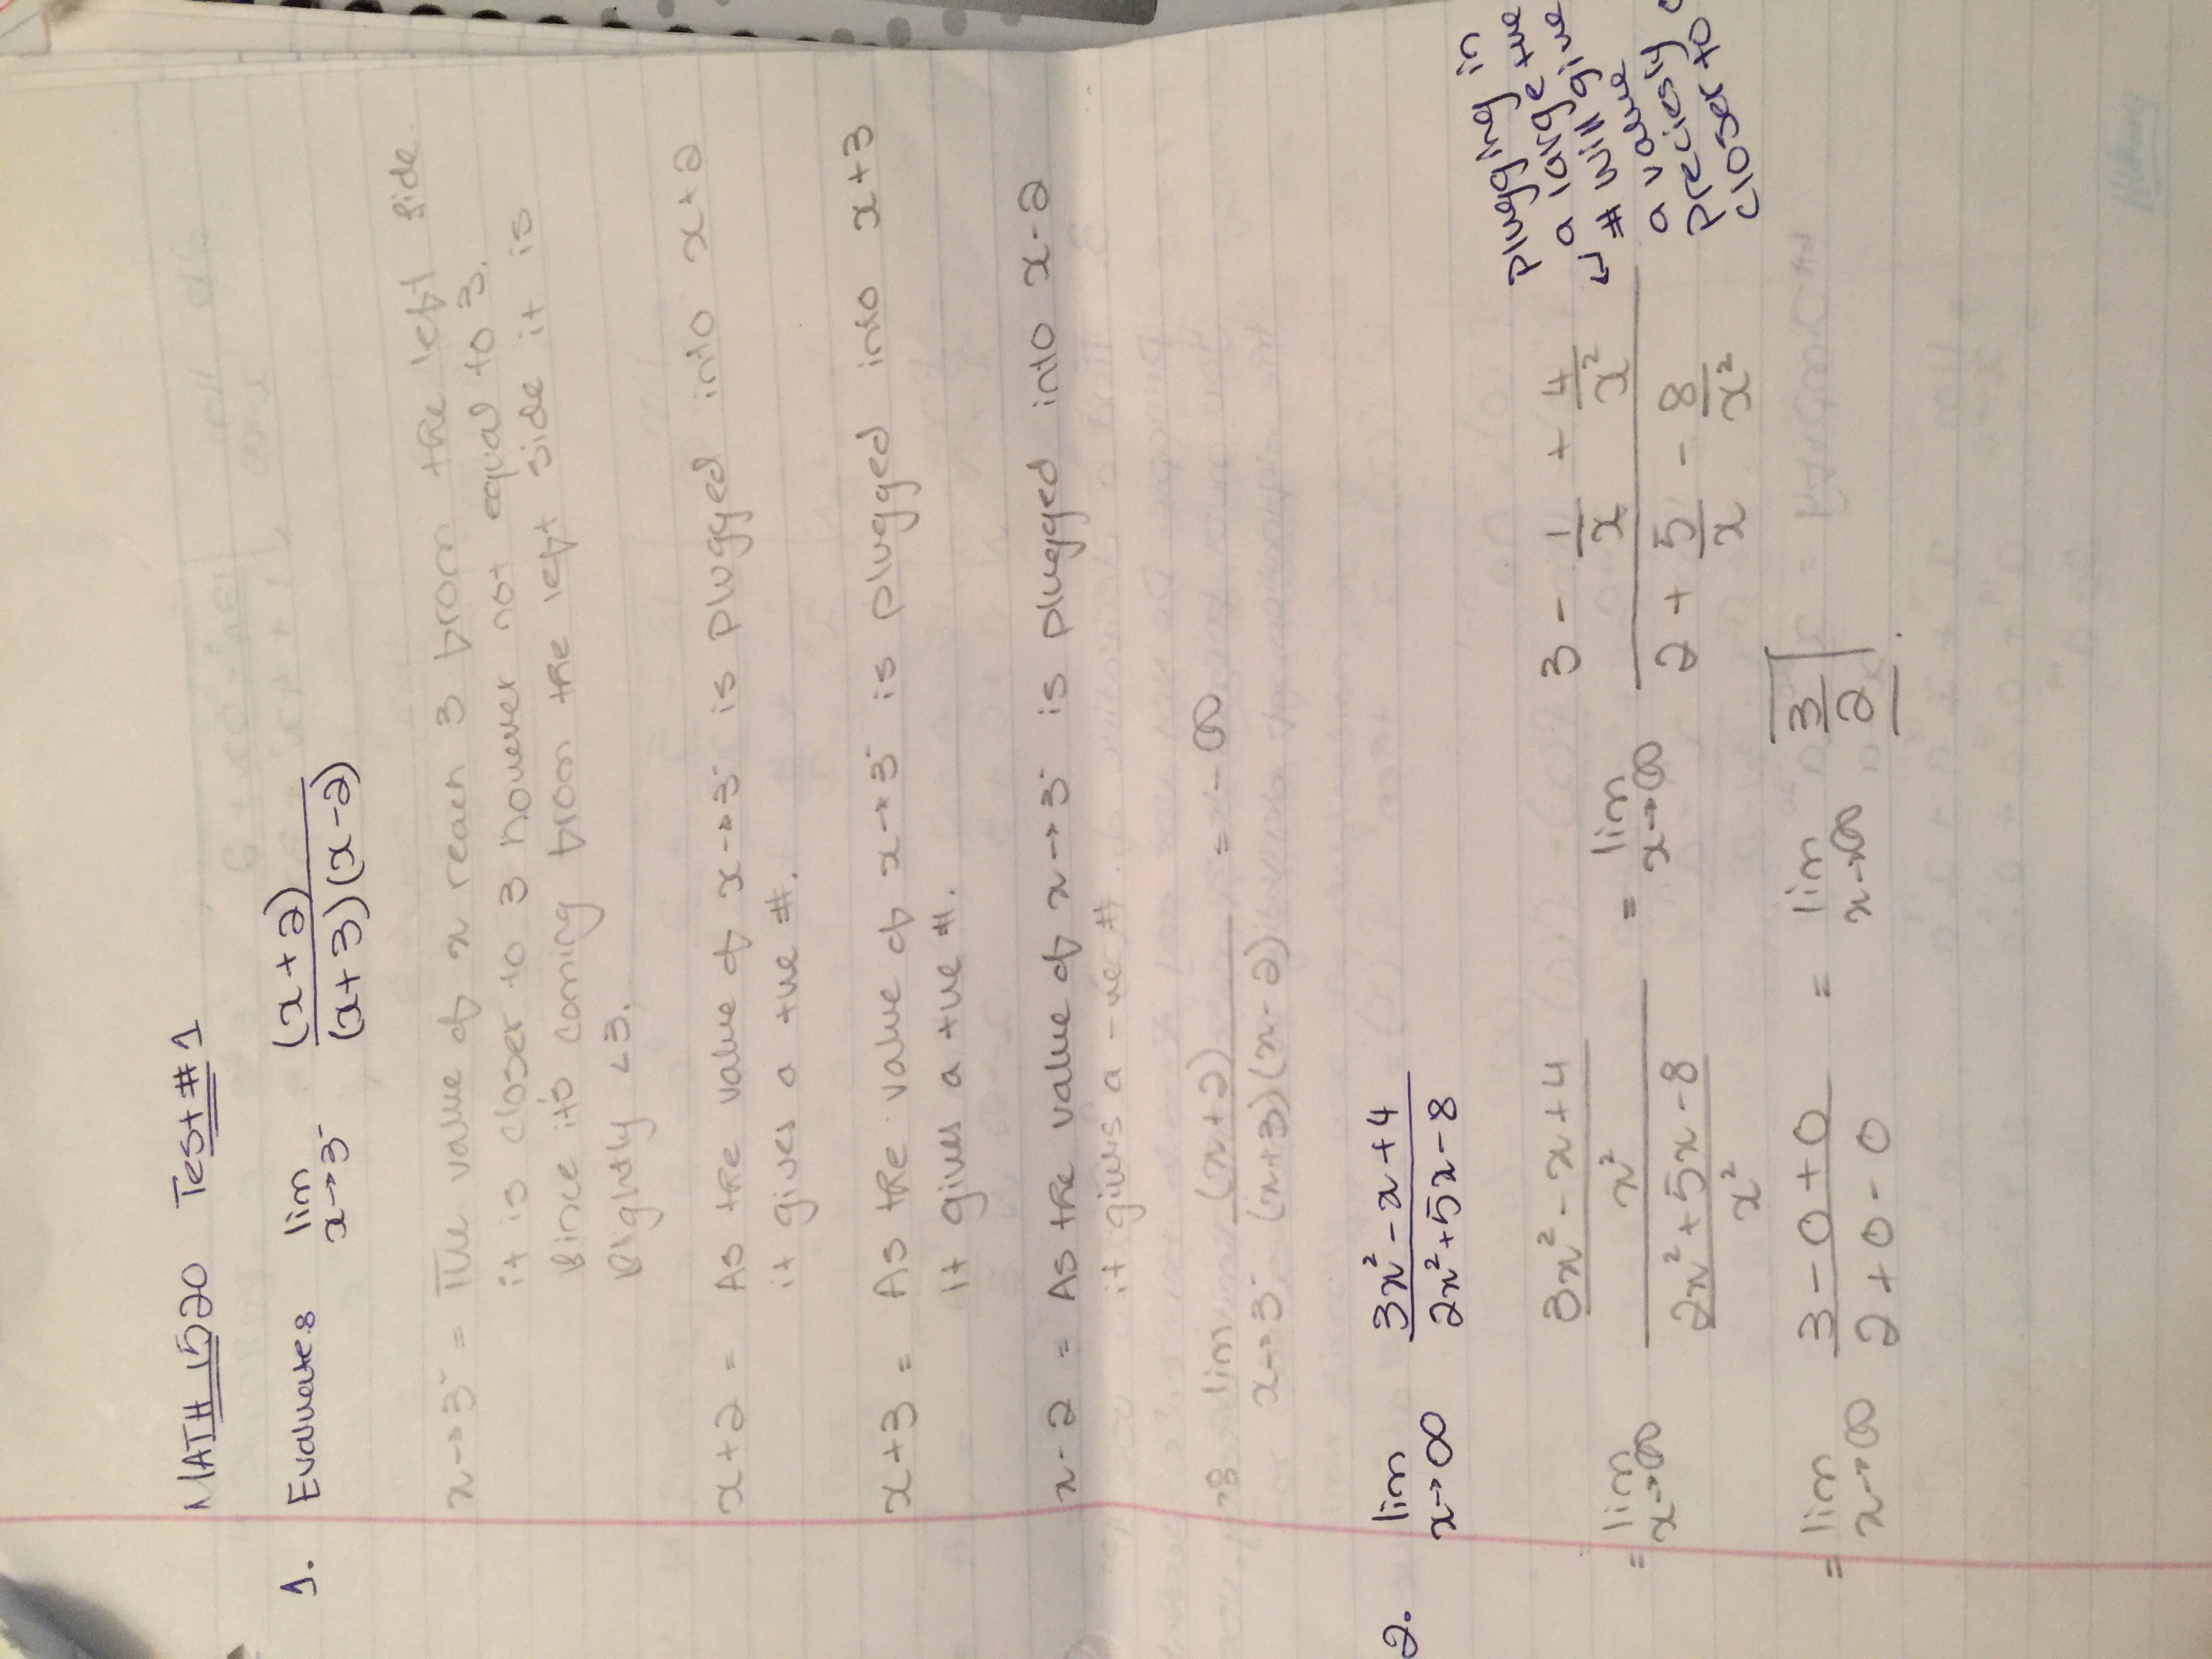 MATH 1520 Test #1
1. Evaluate: lim x→3⁻ (x+2) / (x+3)(x-2)
x→3⁻ = The value of x reach 3 from the left side.
it is closer to 3 however not equal to 3.
Since its coming from the left side it is
slightly <3.
x+2 = As the value of x→3⁻ is plugged into x+2
it gives a +ve #.
x+3 = As the value of x→3⁻ is plugged into x+3
it gives a +ve #.
x-2 = As the value of x→3⁻ is plugged into x-2
it gives a -ve #
lim x→3⁻ (x+2) / (x+3)(x-2) = -∞
2. lim x→∞ 3x²-x+4 / 2x²+5x-8
= lim x→∞ (3x²-x+4 / x²) / (2x²+5x-8 / x²) = lim x→∞ (3 - 1/x + 4/x²) / (2 + 5/x - 8/x²)
plugging in
a large +ve
# will give
a value
preciesly
closer to
= lim x→∞ 3-0+0 / 2+0-0 = lim x→∞ 3/2